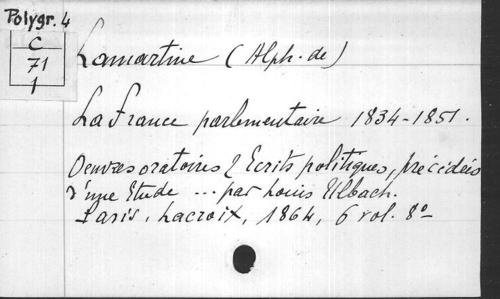 Polygr. 4
C
71
1
Lamartine (Alph. de)
La France parlementaire 1834-1851.
Oeuvres oratoires & Ecrits politiques, précédées
d'une Etude ... par Louis Ulbach.
Paris, Lacroix, 1864, 6 vol. 8º